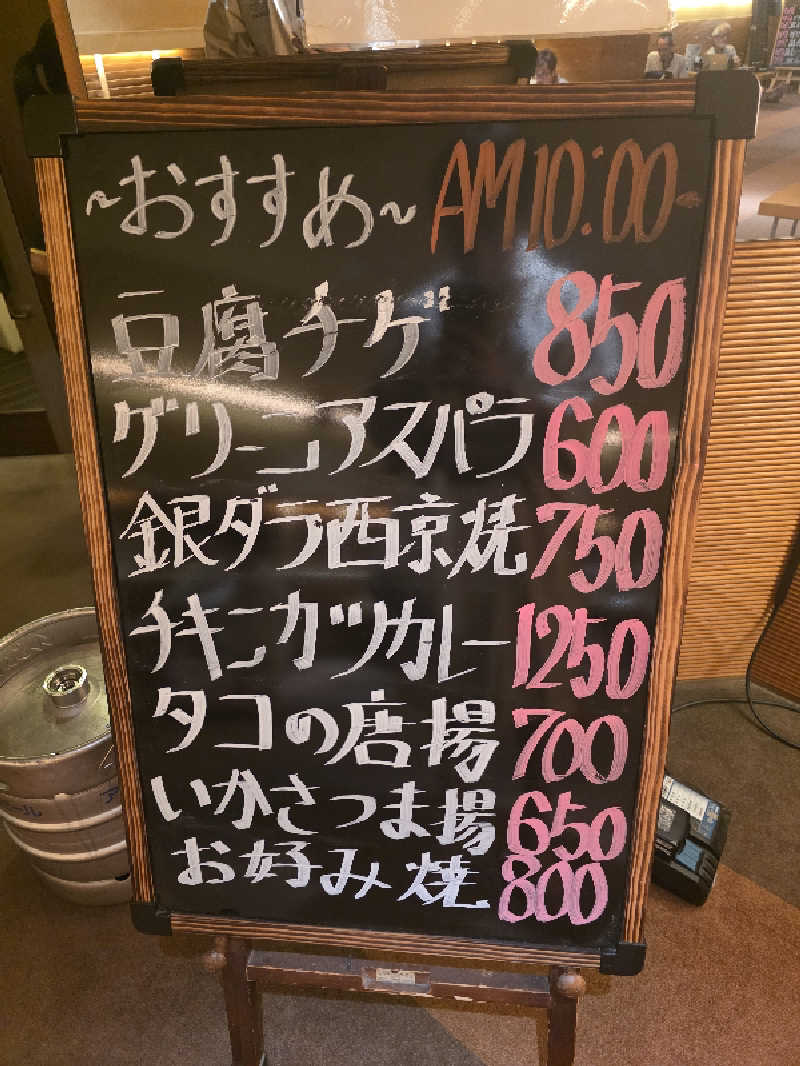 ~おすすめ~ AM10:00-
豆腐チゲ 850
グリーンアスパラ 600
銀ダラ西京焼 750
チキンカツカレー 1250
タコの唐揚 700
いかさつま揚 650
お好み焼 800